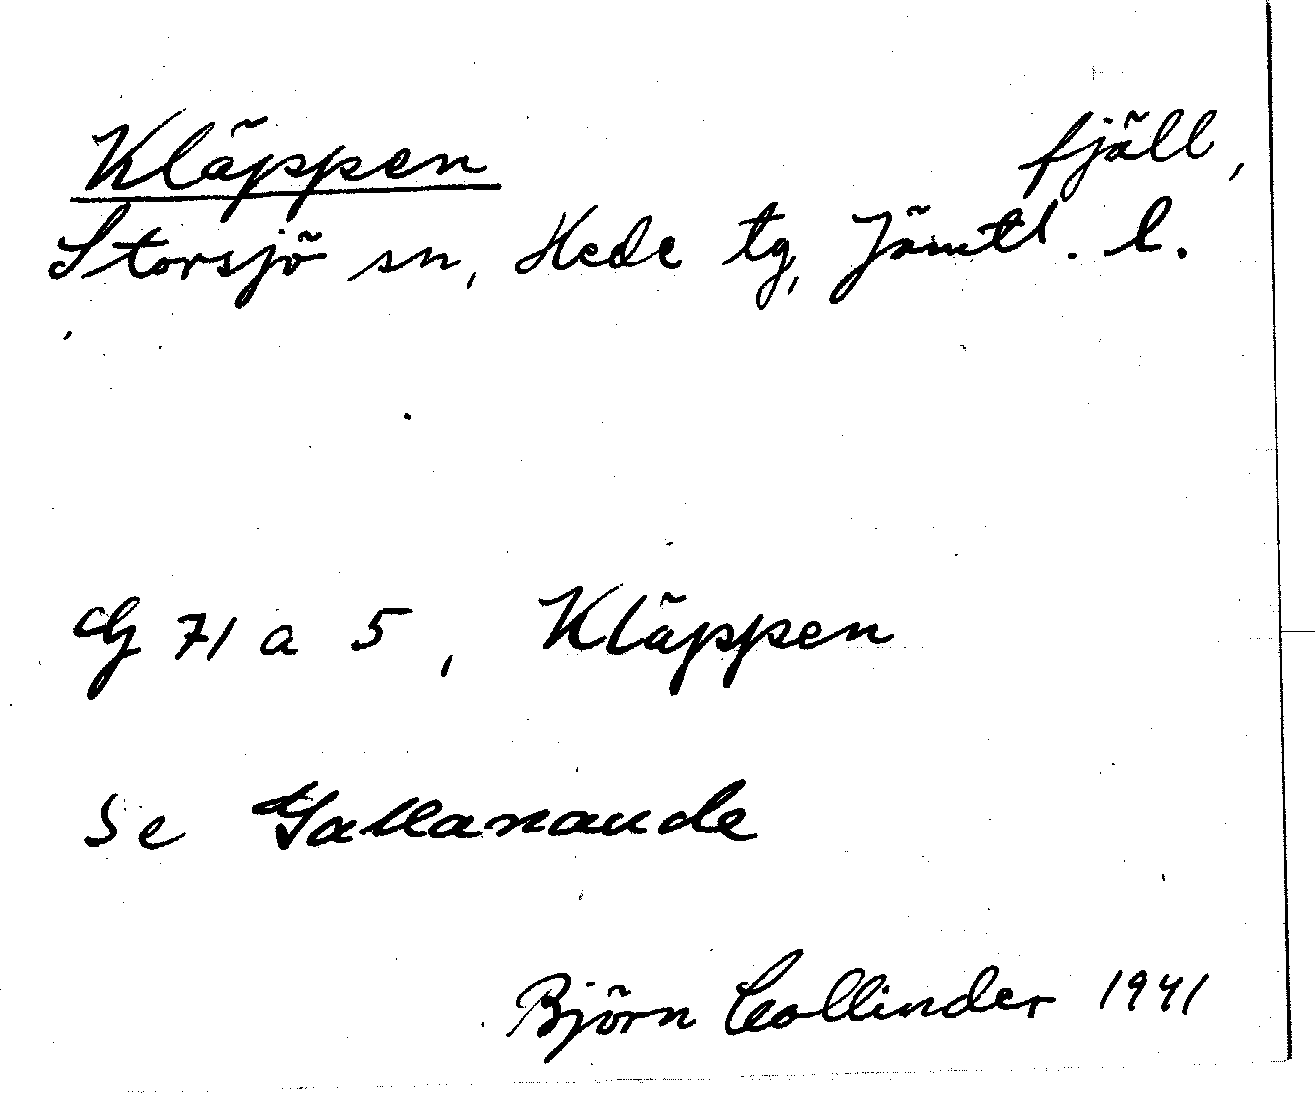 Kläppen fjäll,
Storsjö sn, Hede tg, Jämtl. l.
G 71 a 5, Kläppen
Se
Björn Collinder 1941